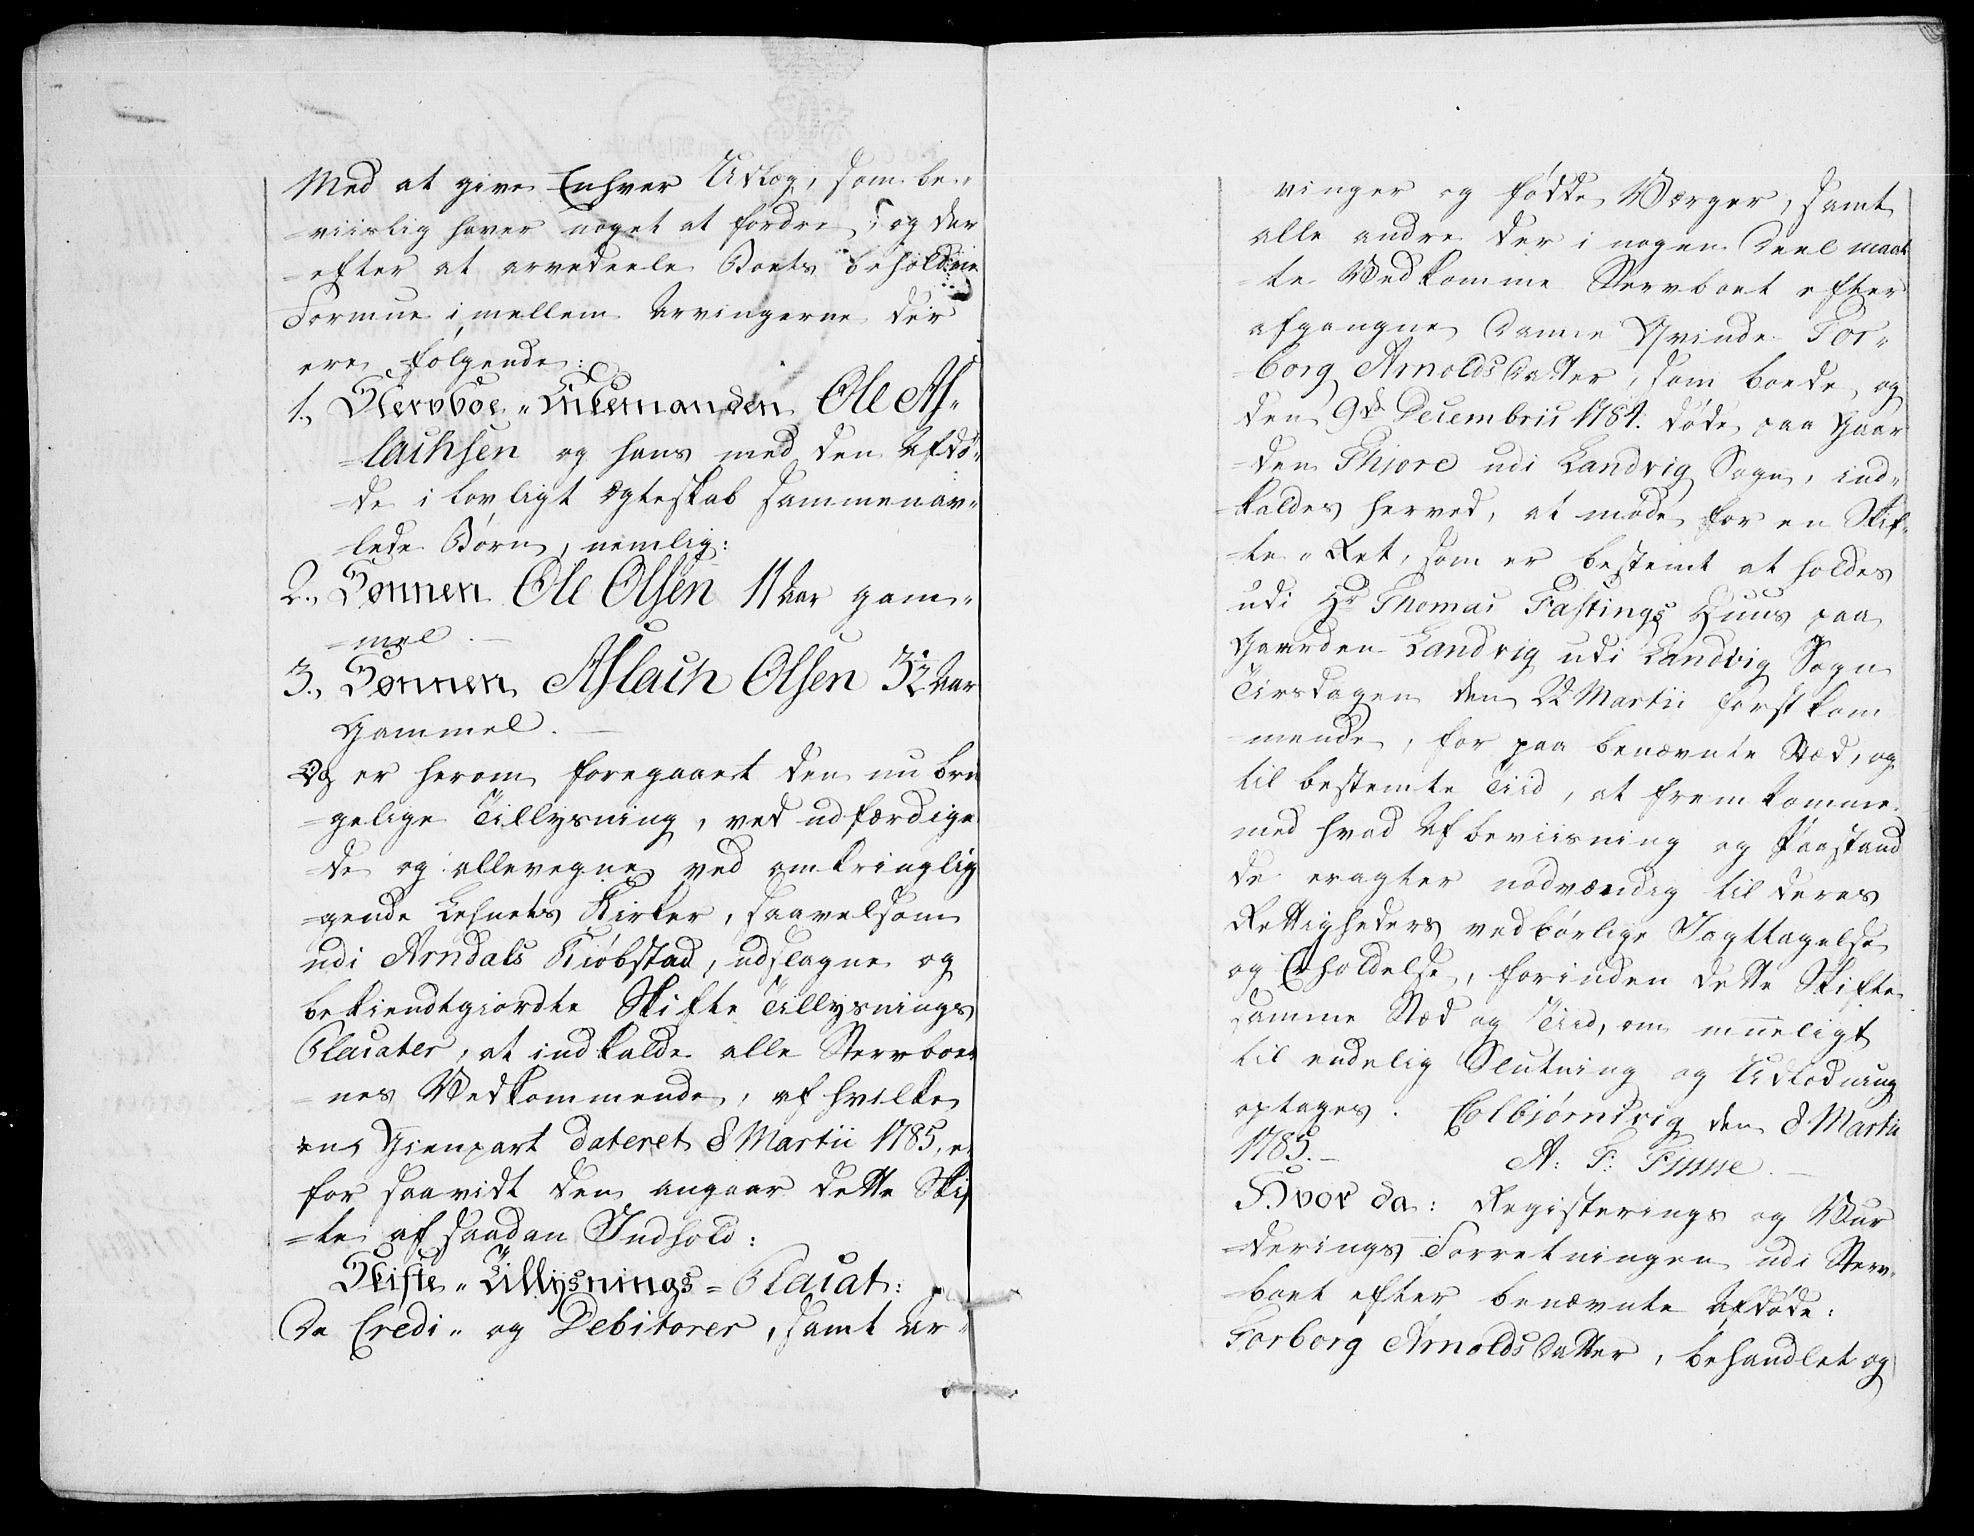 Med at give Enhver Udlæg, som be-
-viislig haver noget at fordre, og der
-efter at arvedeele Boets beholdne
Formue imellem Arvingerne der
ere følgende:
1., Stervboe-Enkemanden Ole As-
-lachsen og hans med den Afdø-
-de i lovligt Ægteskab sammenav-
-lede Børn, nemlig:
2., Sønnen Ole Olsen 11 Aar gam-
-mel.
3., Sønnen Aslach Olsen 3½ Aar
Gammel.
Og er herom foregaaet den nu bru
-gelige Tillysning, ved udfærdige
-de og allevegne ved omkringlig
-gende Lehnets Kirker, saavelsom
udi Arndals Kiøbstad, udslagne og
bekiendtgiordte Skifte Tillysnings
Placater, at indkalde alle Stervboe
-nes Vedkommende, af hvilke
en Gienpart dateret 8 Martii 1785, er
for saavidt den angaar dette Skif
-te af saadan Indhold:
Skifte-Tillysnings=Placat:
De Credi- og Debitorer, samt Ar-
vinger og fødde Værger, samt
alle andre der i nogen Deel maat
-te Vedkomme Stervboet efter
afgangne Danne Qvinde Tor-
-borg Arnoldsdatter, som boede og
den 9de Decembris 1784. døde paa Gaar
-den Thiore udi Landvig Sogn, ind-
-kaldes herved, at møde for en Skif-
-te-Ret, som er bestemt at holdes
udi Hr Thomas Fastings Huus paa
Gaarden Landvig udi Landvig Sogn
Tirsdagen den 22 Martii først kom
-mende, for paa benævnte Stæd, og
til bestemte Tiid, at fremkomme
med hvad Afbeviisning og Paastand
de eragter nødvændig til deres
Rettigheders vedbørlige Iagttagelse
og Erholdelse, forinden dette Skifte
samme Stæd og Tiid, om mueligt
til endelig Slutning og Udlodning
optages. Colbjørnsvig den 8 Martii
1785.- A: F: Finne.
Hvor da: Registerings og Vur
-derings Forretningen udi Sterv-
-boet efter benævnte Afdøde:
Torborg Arnoldsdatter, behandlet og